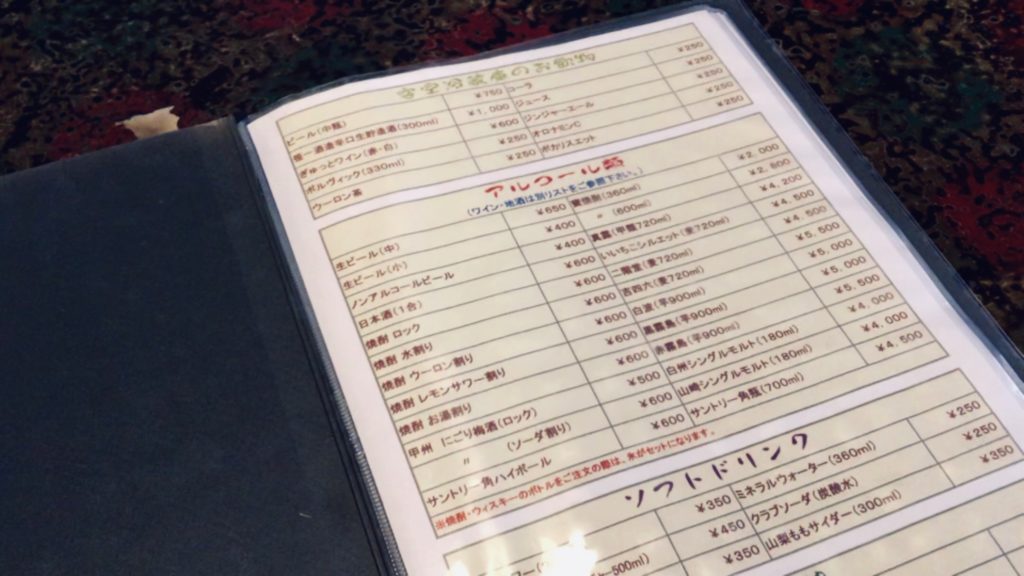 客室冷蔵庫のお飲物
ビール(中瓶) ¥750 コーラ ¥250
¥1,000 ジュース ¥250
ぎゅっとワイン(赤・白) ¥600 ジンジャーエール ¥250
ボルヴィック(330ml) ¥250 オロナミンC ¥250
ウーロン茶 ¥250 ポカリスエット ¥250
アルコール類
(ワイン・地酒は別リストをご参照下さい。)
生ビール(中) ¥650 (360ml) ¥2,000
生ビール(小) ¥400 〃 (600ml)
ノンアルコールビール ¥400 (720ml) ¥4,200
日本酒(1合) ¥600 いいちこシルエット(麦720ml) ¥4,500
焼酎 ロック ¥600 二階堂(麦720ml) ¥4,500
焼酎 水割り ¥600 吉四六(麦720ml) ¥5,500
焼酎 ウーロン割り ¥600 白波(芋900ml) ¥5,000
焼酎 レモンサワー割り ¥600 黒霧島(芋900ml) ¥5,000
焼酎 お湯割り ¥600 赤霧島(芋900ml) ¥5,500
甲州 にごり梅酒(ロック) ¥500 白州シングルモルト(180ml) ¥4,000
〃 (ソーダ割り) ¥600 山崎シングルモルト(180ml) ¥4,000
サントリー角ハイボール ¥600 サントリー角瓶(700ml) ¥4,500
※焼酎・ウィスキーのボトルをご注文の際は、氷がセットになります。
ソフトドリンク
¥350 ミネラルウォーター(360ml) ¥250
¥450 クラブソーダ(炭酸水) ¥250
500ml) ¥350 山梨ももサイダー(300ml) ¥350